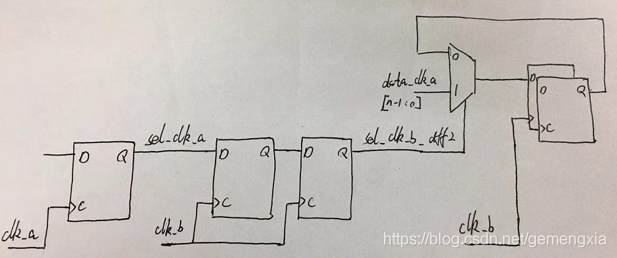 0
data_clk_a
1
[n-1:0]
D
D Q
C
sel_clk_a
sel_clk_b_dff2
D Q
C
D Q
C
D Q
C
clk_a
clk_b
clk_b
https://blog.csdn.net/gemengxia